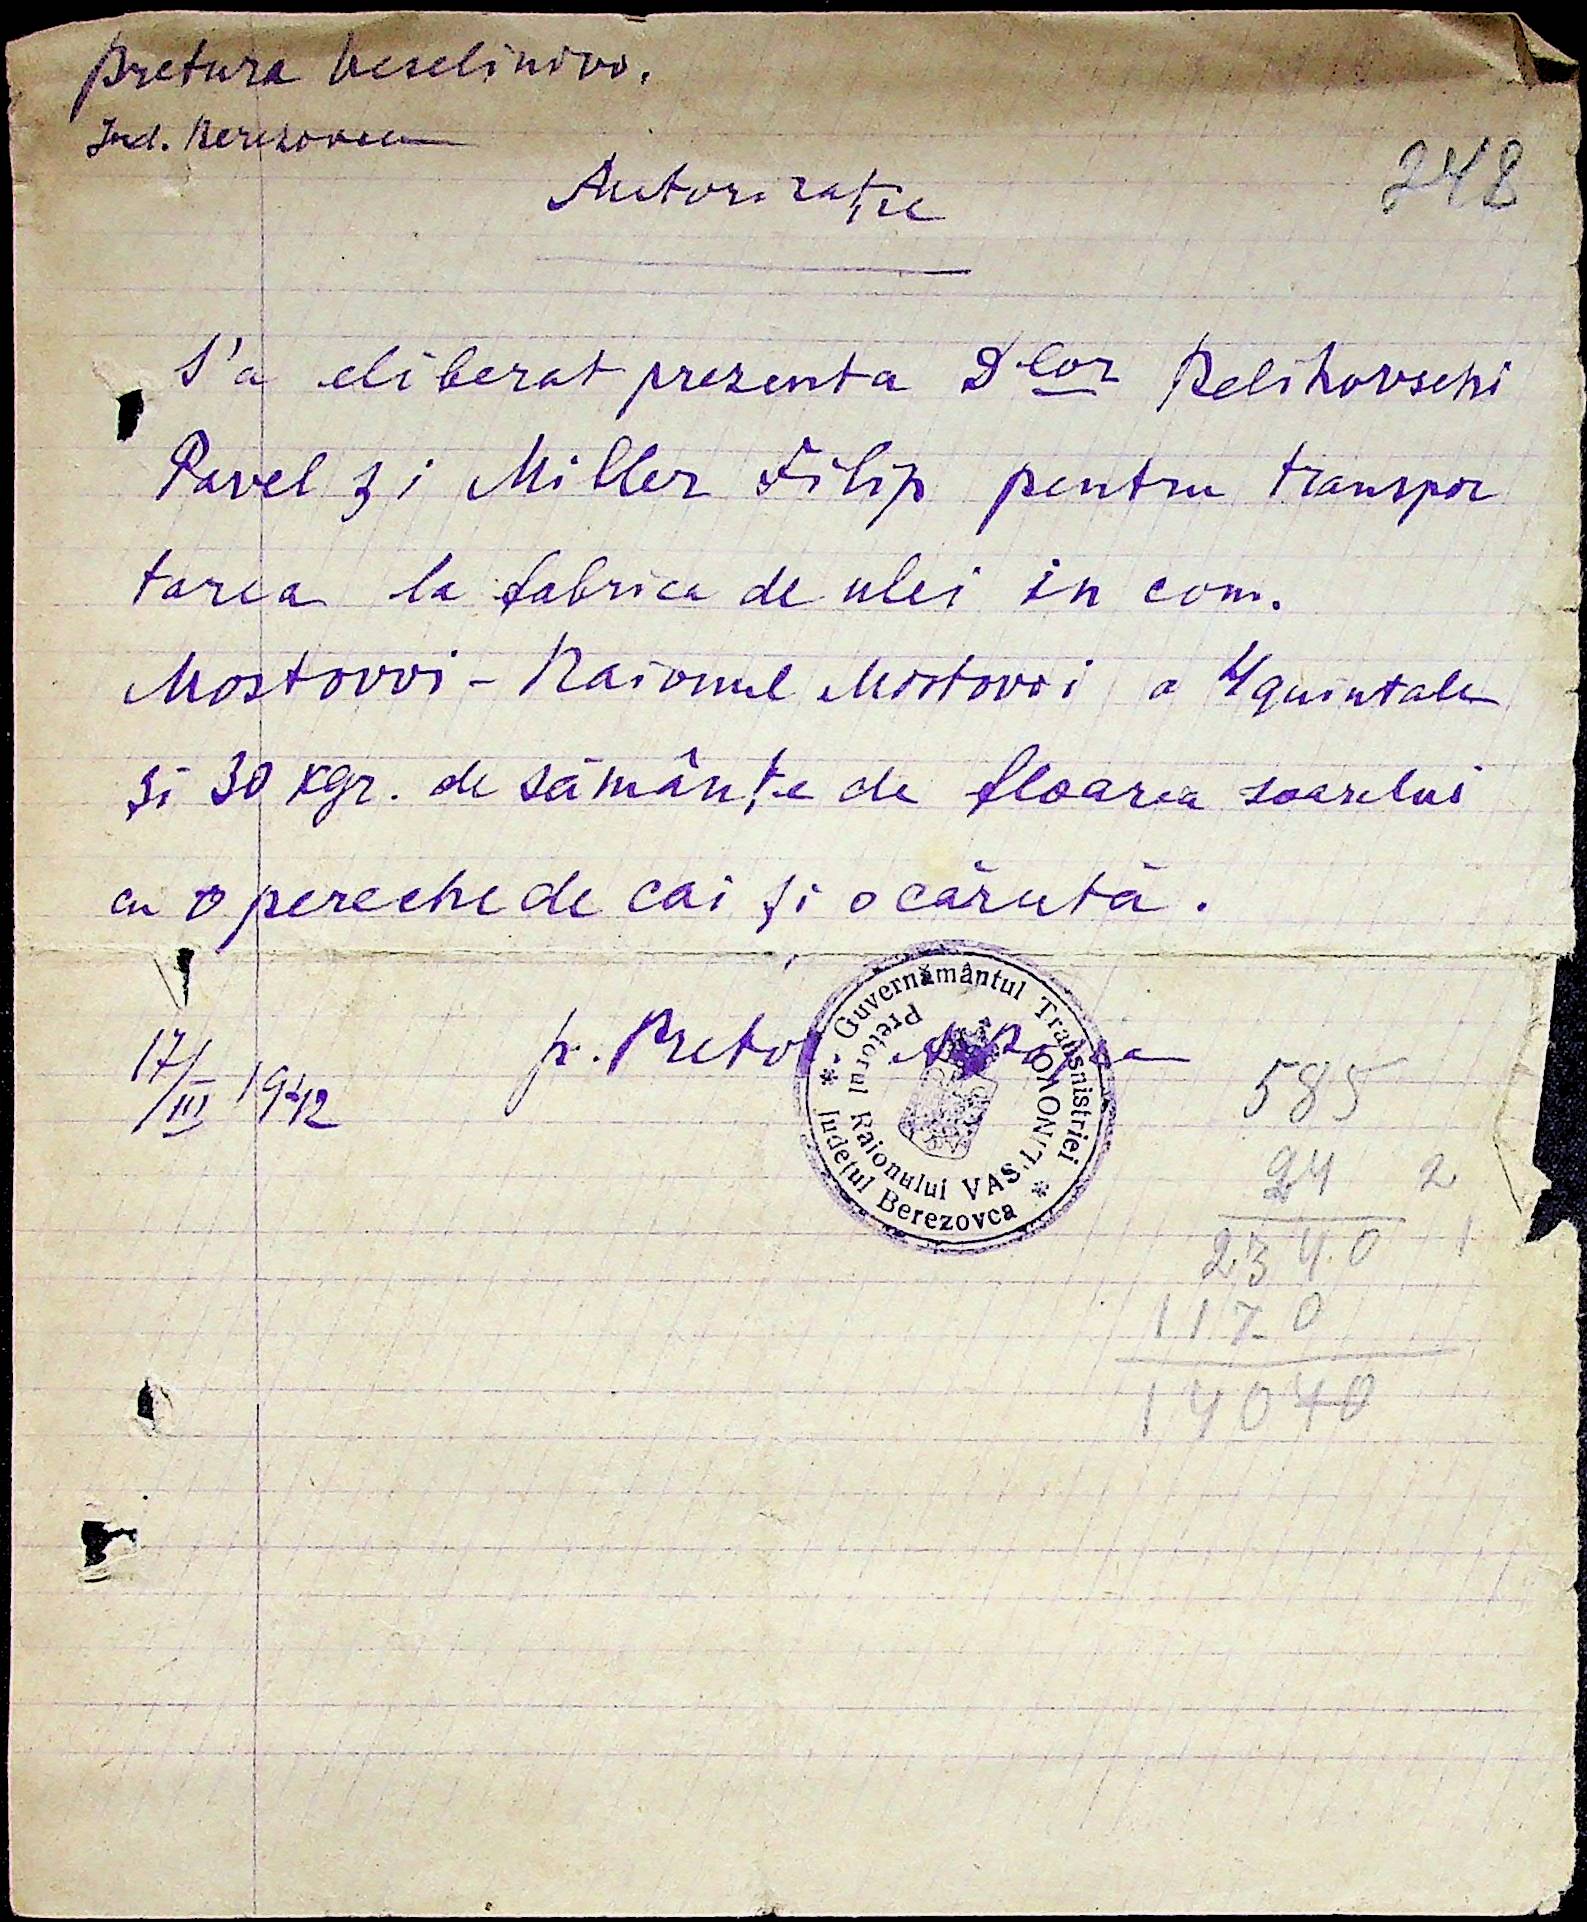 Pretura Veselinovo.
Jud. Berezovca
248
Autorizație
S'a eliberat prezenta Dlor Pelihovschi
Pavel și Miller Filip pentru transpor
tarea la fabrica de ulei in com.
Mostovoi - Raionul Mostovoi a 4 quintale
și 30 kgr. de sămânțe de floarea soarelui
cu o pereche de cai și o căruță.
Guvernământul Transnistriei
Pretorul Raionului VAS.LINOVKO
Județul Berezovca
p. Pretor
17/III 1942
585
24 2
2340 1
1170
14040